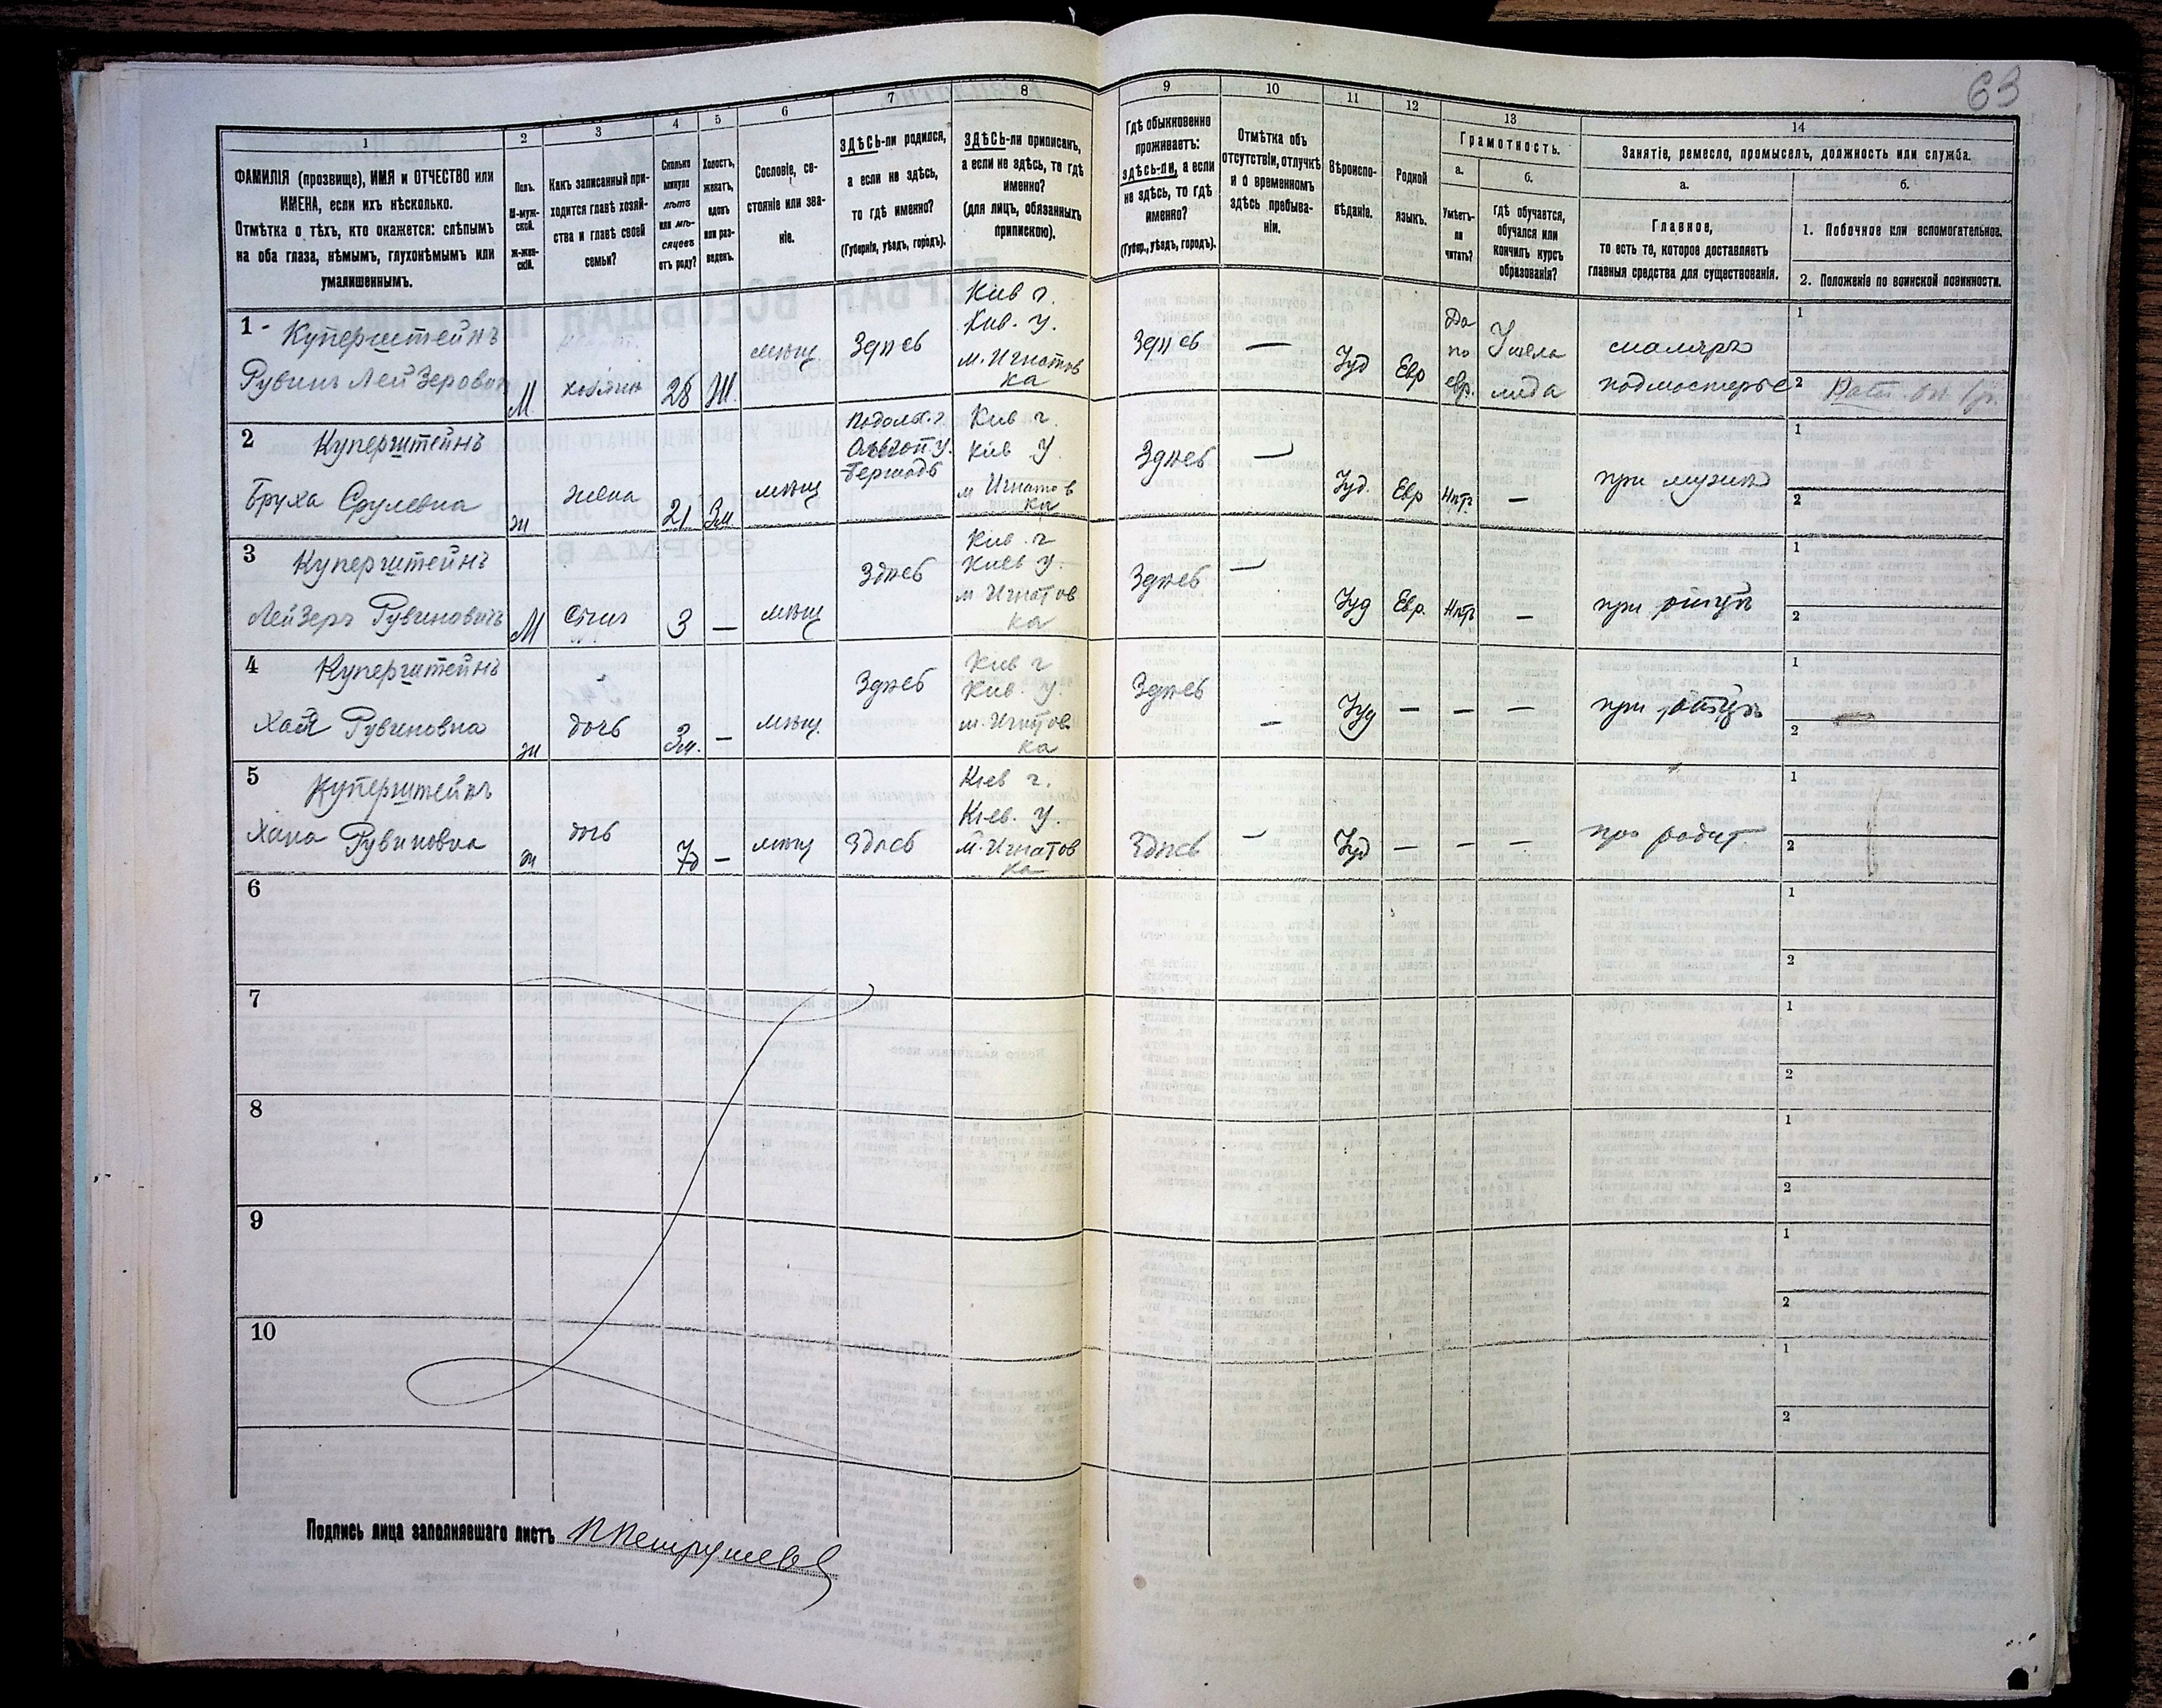 63
1
2
3
4
5
6
7
8
9
10
11
12
13
14
ФАМИЛІЯ (прозвище), ИМЯ и ОТЧЕСТВО или
ИМЕНА, если ихъ нѣсколько.
Отмѣтка о тѣхъ, кто окажется: слѣпымъ
на оба глаза, нѣмымъ, глухонѣмымъ или
умалишеннымъ.
Полъ.
М-муж-
ской.
Ж-жен-
скій.
Какъ записанный при-
ходится главѣ хозяй-
ства и главѣ своей
семьи?
Сколько
минуло
лѣтъ
или мѣ-
сяцевъ
отъ роду?
Холостъ,
женатъ,
вдовъ
или раз-
веденъ.
Сословіе, со-
стояніе или зва-
ніе.
ЗДѢСЬ-ли родился,
а если не здѣсь,
то гдѣ именно?
(Губернія, уѣздъ, городъ).
ЗДѢСЬ-ли приписанъ,
а если не здѣсь, то гдѣ
именно?
(для лицъ, обязанныхъ
припискою).
Гдѣ обыкновенно
проживаетъ:
здѣсь-ли, а если
не здѣсь, то гдѣ
именно?
(Губер., уѣздъ, городъ).
Отмѣтка объ
отсутствіи, отлучкѣ
и о временномъ
здѣсь пребыва-
ніи.
Вѣроиспо-
вѣданіе.
Родной
языкъ.
Грамотность.
а.
Умѣетъ-
ли
читать?
б.
гдѣ обучается,
обучался или
кончилъ курсъ
образованія?
Занятіе, ремесло, промыселъ, должность или служба.
а.
Главное,
то есть то, которое доставляетъ
главныя средства для существованія.
б.
1. Побочное или вспомогательное.
2. Положеніе по воинской повинности.
1 - Куперштейнъ
Рувинъ Лейзеровъ
М
хозяинъ
28
Ж
мѣщ
Здѣсь
Кив г.
Кив. у.
м. Игнатов
ка
Здѣсь
—
Іуд
Евр
Да
по
евр.
У мела
меда
маляръ
подмастерье
1
2
2 Куперштейнъ
Бруха Срулевна
ж
жена
21
Зм.
мѣщ
Подольс. г.
Ольгоп у.
Бершадь
Кив г.
Кив у.
м Игнатов
ка
Здѣсь
—
Іуд.
Евр
Нѣтъ
—
при мужѣ
1
2
3 Куперштейнъ
Лейзеръ Рувиновичъ
М
Сынъ
3
—
мѣщ
Здѣсь
Кив. г
Киев у.
м Игнатов
ка
Здѣсь
—
Іуд
Евр.
Нѣтъ
—
при отцѣ
1
2
4 Куперштейнъ
Хая Рувиновна
ж
дочь
3м.
—
мѣщ.
Здѣсь
Кив г
Кив. у.
м. Игнатов
ка
Здѣсь
—
Іуд
—
—
—
при отцѣ
1
2
5 Куперштейнъ
Хана Рувиновна
ж
дочь
7д
—
мѣщ
Здѣсь
Кіев г.
Кіев. у.
м. Игнатов
ка
Здѣсь
—
Іуд
—
—
—
при родит.
1
2
6
1
2
7
1
2
8
1
2
9
1
2
10
1
2
Подпись лица заполнявшаго листъ